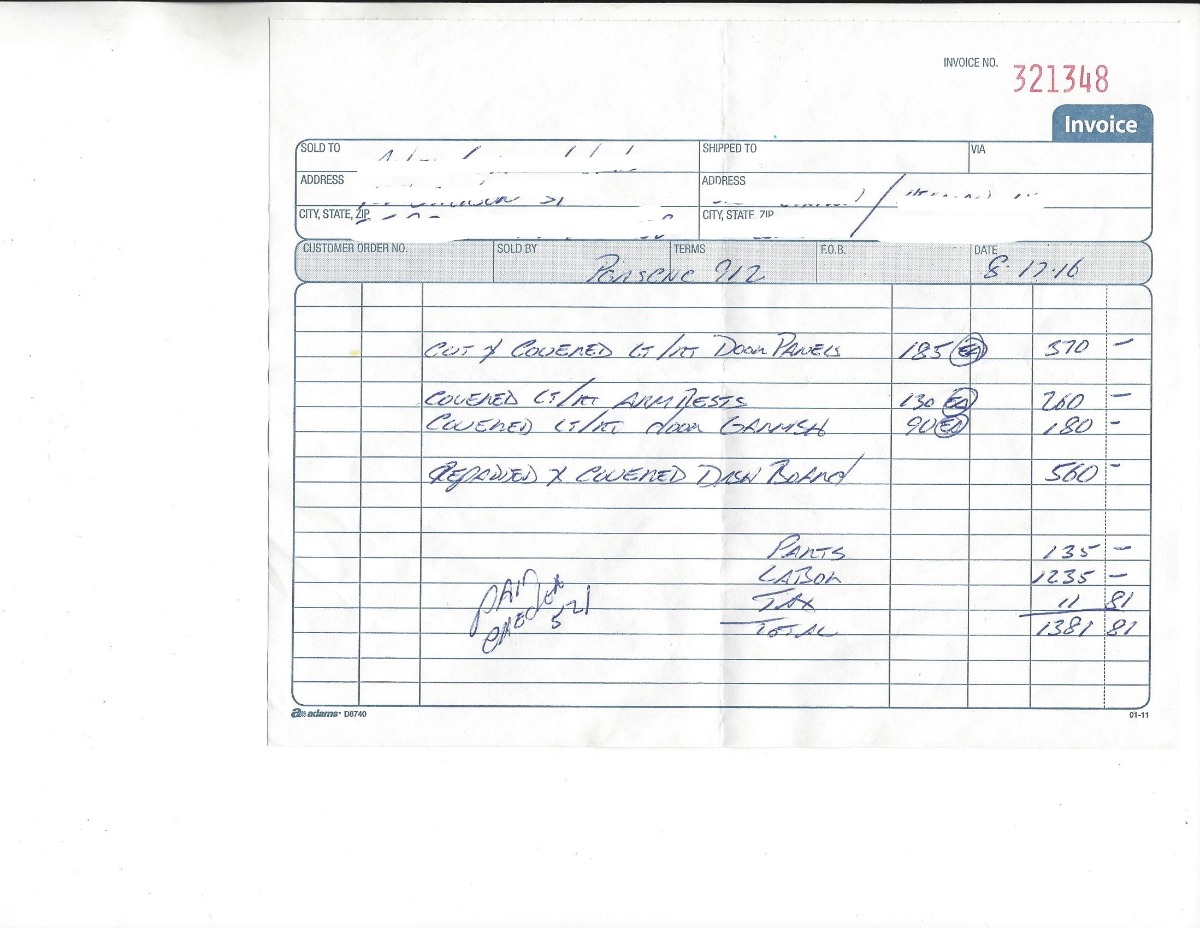 INVOICE NO. 321348
Invoice
SOLD TO SHIPPED TO VIA
ADDRESS ADDRESS
CITY, STATE, ZIP CITY, STATE ZIP
CUSTOMER ORDER NO. SOLD BY TERMS F.O.B. DATE
PORSCHE 912 8-17-16
CUT & COVERED LT/RT DOOR PANELS 185 EA 370 -
COVERED LT/RT ARM RESTS 130 EA 260 -
COVERED LT/RT DOOR GARNISH 90 EA 180 -
REPAIRED & COVERED DASH BOARD 560 -
PARTS 135 -
LABOR 1235 -
TAX 11 81
TOTAL 1381 81
PAID
CHECK#
521
adams D8740 01-11